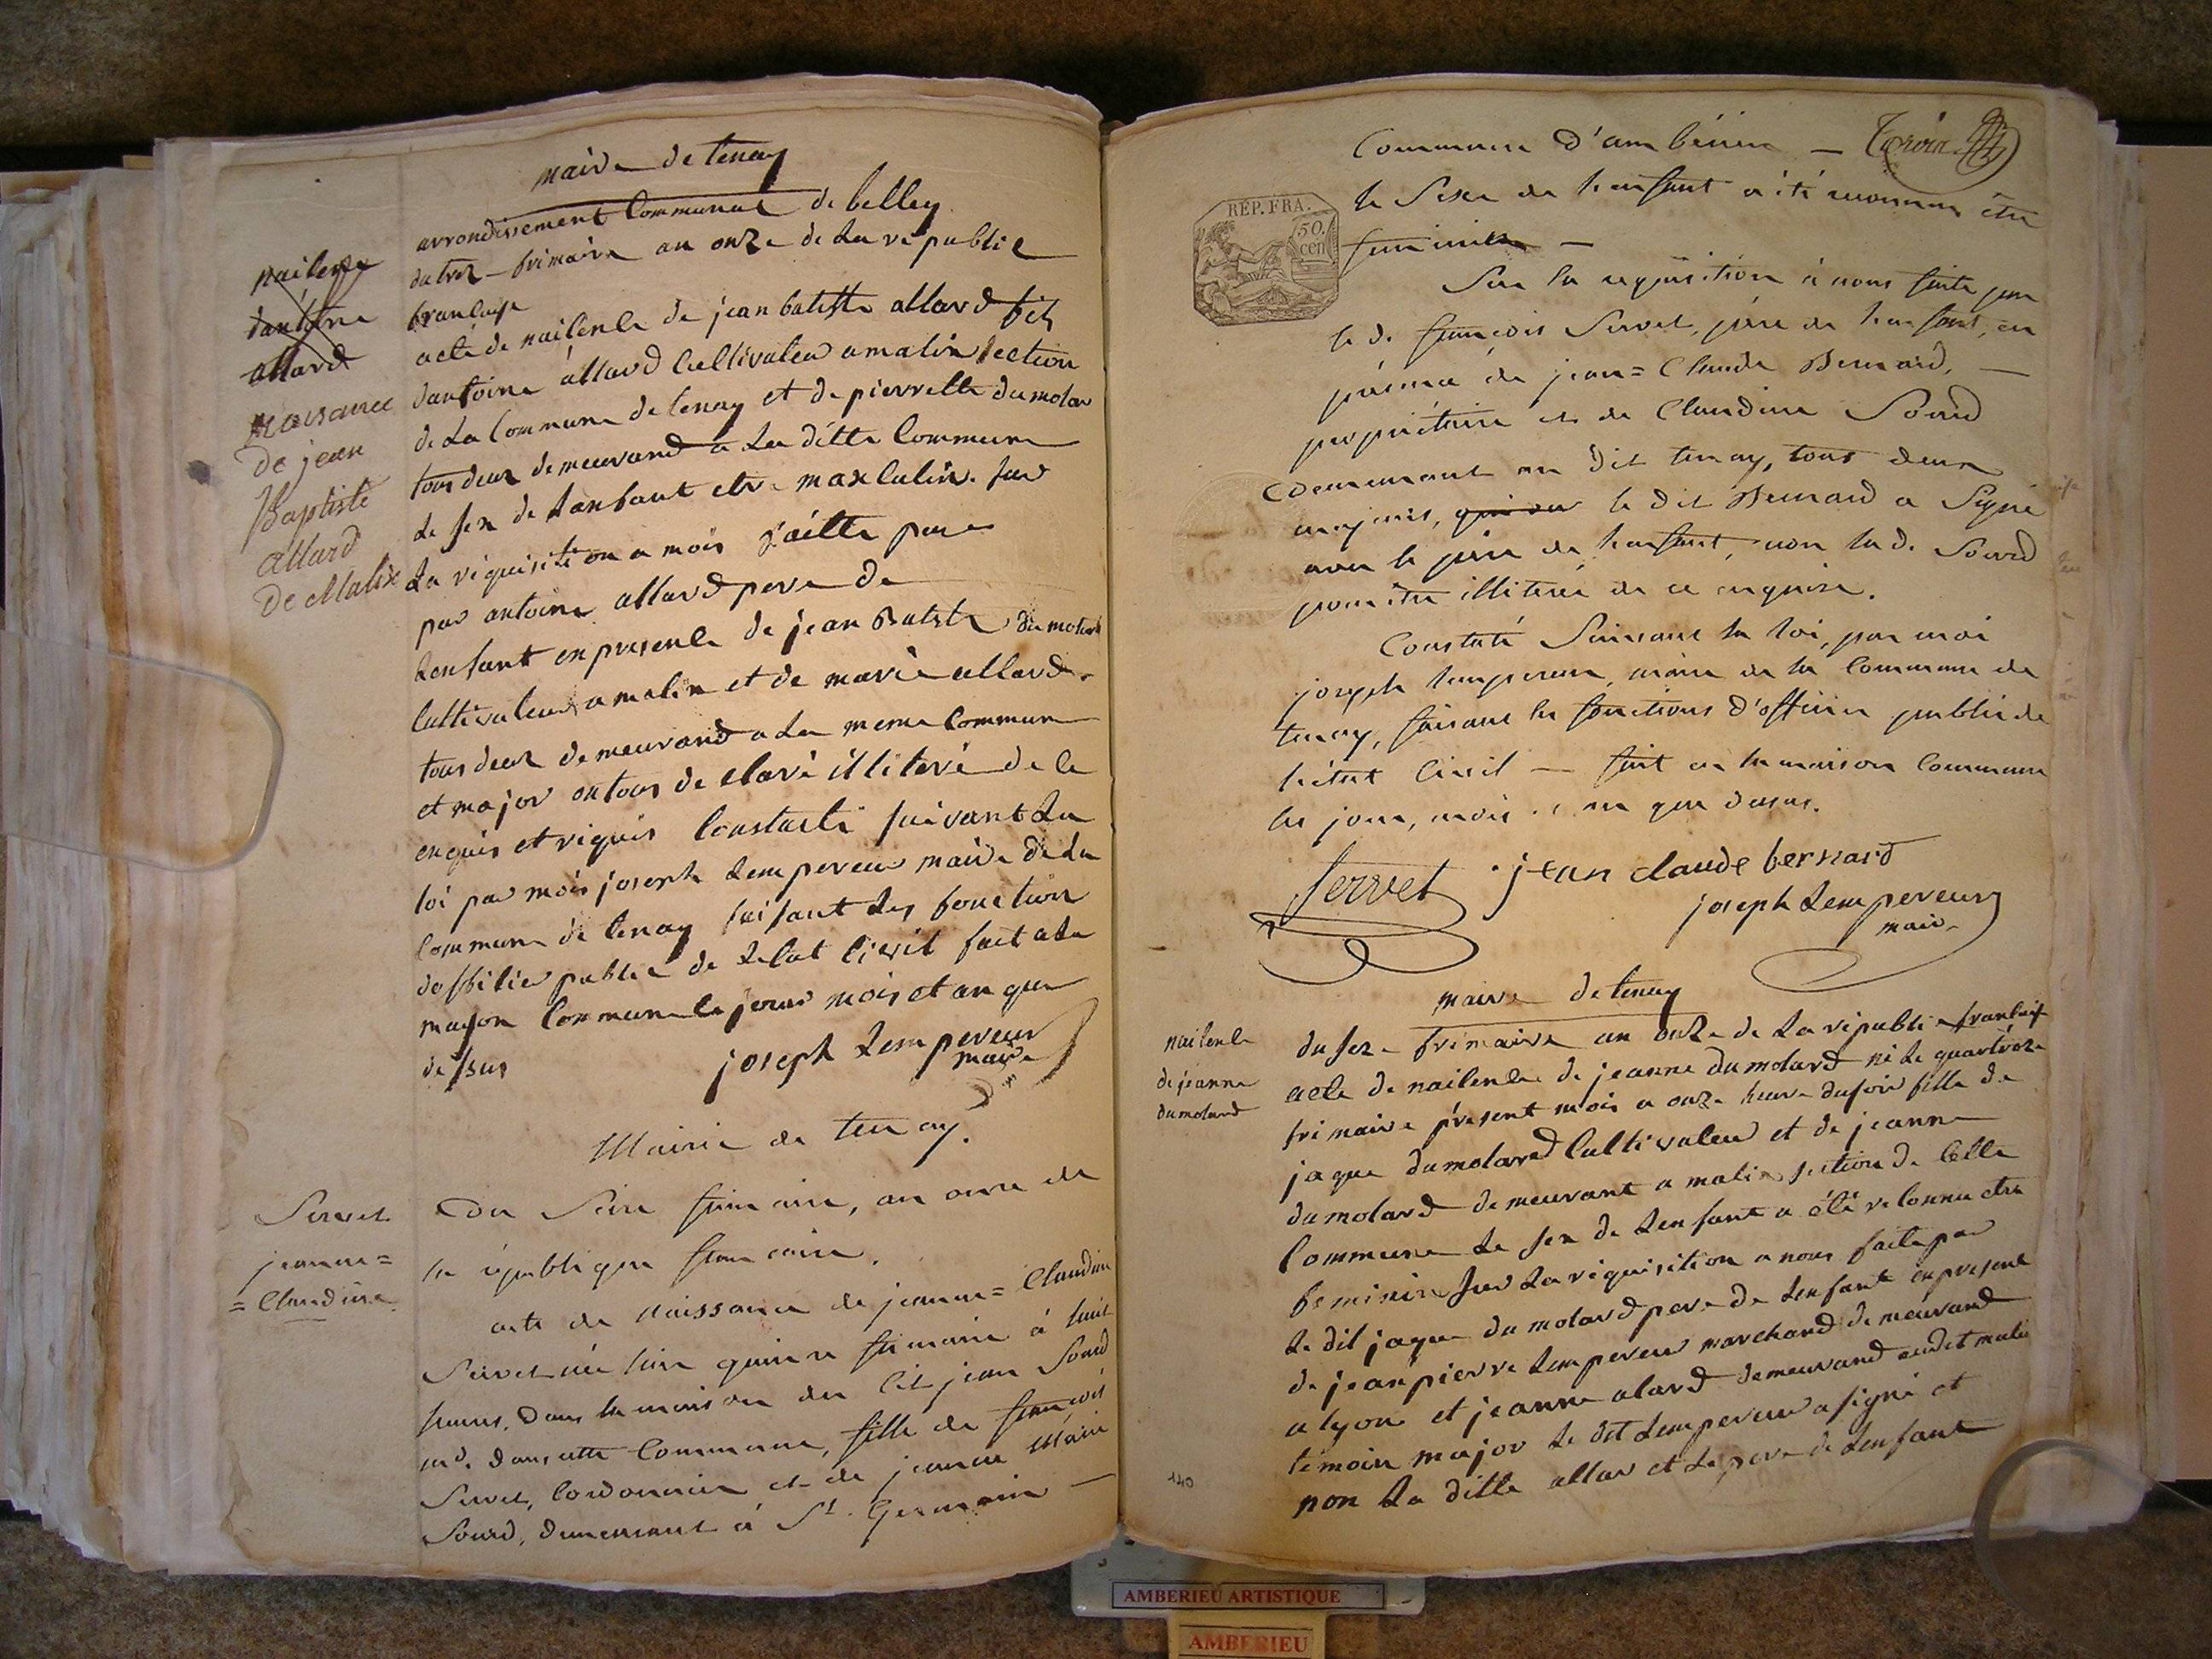 maire de tenay
arrondissement Communal de belley
du trez frimaire an onze de La républic
francaise
nailense
dantoine
allard
Naissance
de jean
Baptiste
allard
de Malix
acte de nailence de jean batiste allard fils
dantoine allard Cultivateu a malix section
de La Commune de tenay et de pierrette dumolar
tous deux demeurand a La ditte Commune
Le sex de Lanfant etre maxculin. sur
La riquisition a mois faitte par
par antoine allard pere de
Lenfant en presence de jean Batiste dumolard
Cultivateur a malix et de marie allard
tous deux demeurand a La meme Commune
et major on tous de claré illiteré de ce
enquis et riquis Constaté suivant La
loi par mois joseph Lempereur maire de La
Commune de tenay faisant Les fonction
doffilier public de Letat Civil fait a La
mayson Commune Le jour mois et an que
dessus joseph Lempereur
maire
Mairie de tenay.
Servet
jeanne=
=Claudine
Du Seize frimaire, an onze de
la république francaise.
acte de Naissance de jeanne=Claudine
Servet née hier quinze frimaire à huit
heures, dans la maison du cit jean Sourd
md. dans cette Commune, fille de françois
Servet, Cordonnier et de jeanne Marie
Sourd, demeurant à St. Germain
Commune d'ambérieu
RÉP. FRA.
50.
cen
le Sexe de l'enfant a été reconnu être
feminin
Sur la requisition à nous faite par
le d. françois Servet, père de l'enfant, en
présence de jean=Claude Bernard,
propriétaire et de Claudine Sourd
Demeurant au dit tenay, tous deux
majeurs, le dit Bernard a Signé
avec le père de l'enfant, non la d. Sourd
pour être illiterée de ce enquise.
Constaté Suivant la loi, par moi
joseph lempereur, maire de la Commune de
tenay, faisant les fonctions d'officier public de
l'état Civil — fait en la maison Commune
les jour, mois et an que dessus.
Servet jean claude bernard
joseph Lempereur
maire
maire de tenay
nailence
de jeanne
dumolard
du seze frimaire an onze de La républic francaise
acte de nailence de jeanne dumolard né Le quartorze
frimaire présent mois a onze heure dusoir fille de
jaque dumolard Cultivateu et de jeanne
dumolard demeurant a malix section de Cette
Commune Le sex de Lenfant a été reconnu etre
feminin sur La riquisition a nous faite par
Le dit jaque dumolard pere de Lenfant en presence
de jean pierre Lempereur marchand demeurand
a lyon et jeanne alard demeurand audit malix
temoin major Le dit Lempereur a signé et
non La ditte allar et Le pere de Lenfant
140
AMBERIEU ARTISTIQUE
AMBERIEU